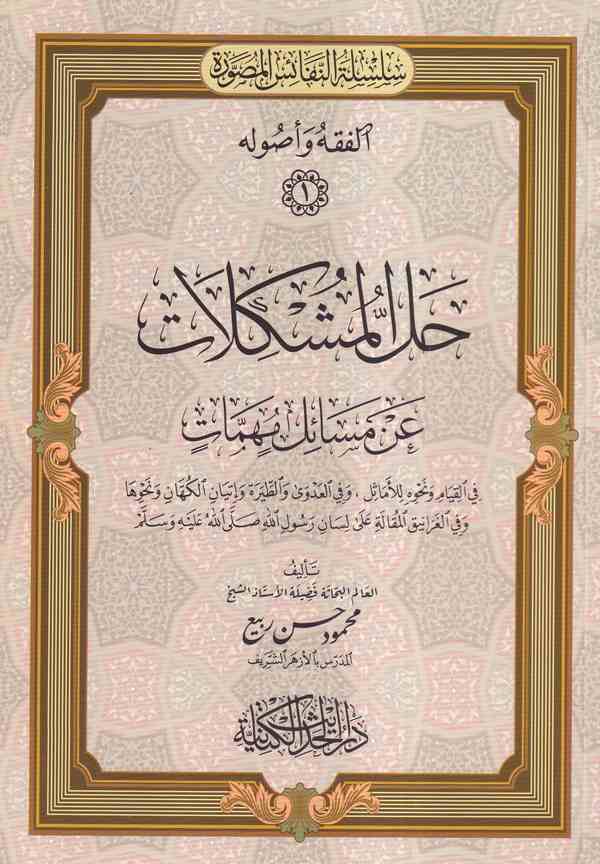 سِلْسِلَةُ النَّفَائِسِ المُصَوَّرَة
الفقه وأصوله
١
حَلُّ المُشْكِلَات
عَنْ مَسَائِلَ مُهِمَّاتٍ
فِي القِيَامِ وَنَحْوِهِ لِلأَمَاثِل ، وَفِي العَدْوَىٰ وَالطِّيَرَةِ وَإِتْيَانِ الكُهَّانِ وَنَحْوِهَا
وَفِي الغَرَانِيقِ المُقَالَةِ عَلَىٰ لِسَانِ رَسُولِ اللهِ صَلَّى اللهُ عَلَيْهِ وَسَلَّمَ
تَأْلِيفُ
العَالِمِ البَحَّاثَة فَضِيلَة الأُسْتَاذ الشَّيْخ
محمود حسن ربيع
المُدَرِّس بالأَزْهَرِ الشَّرِيف